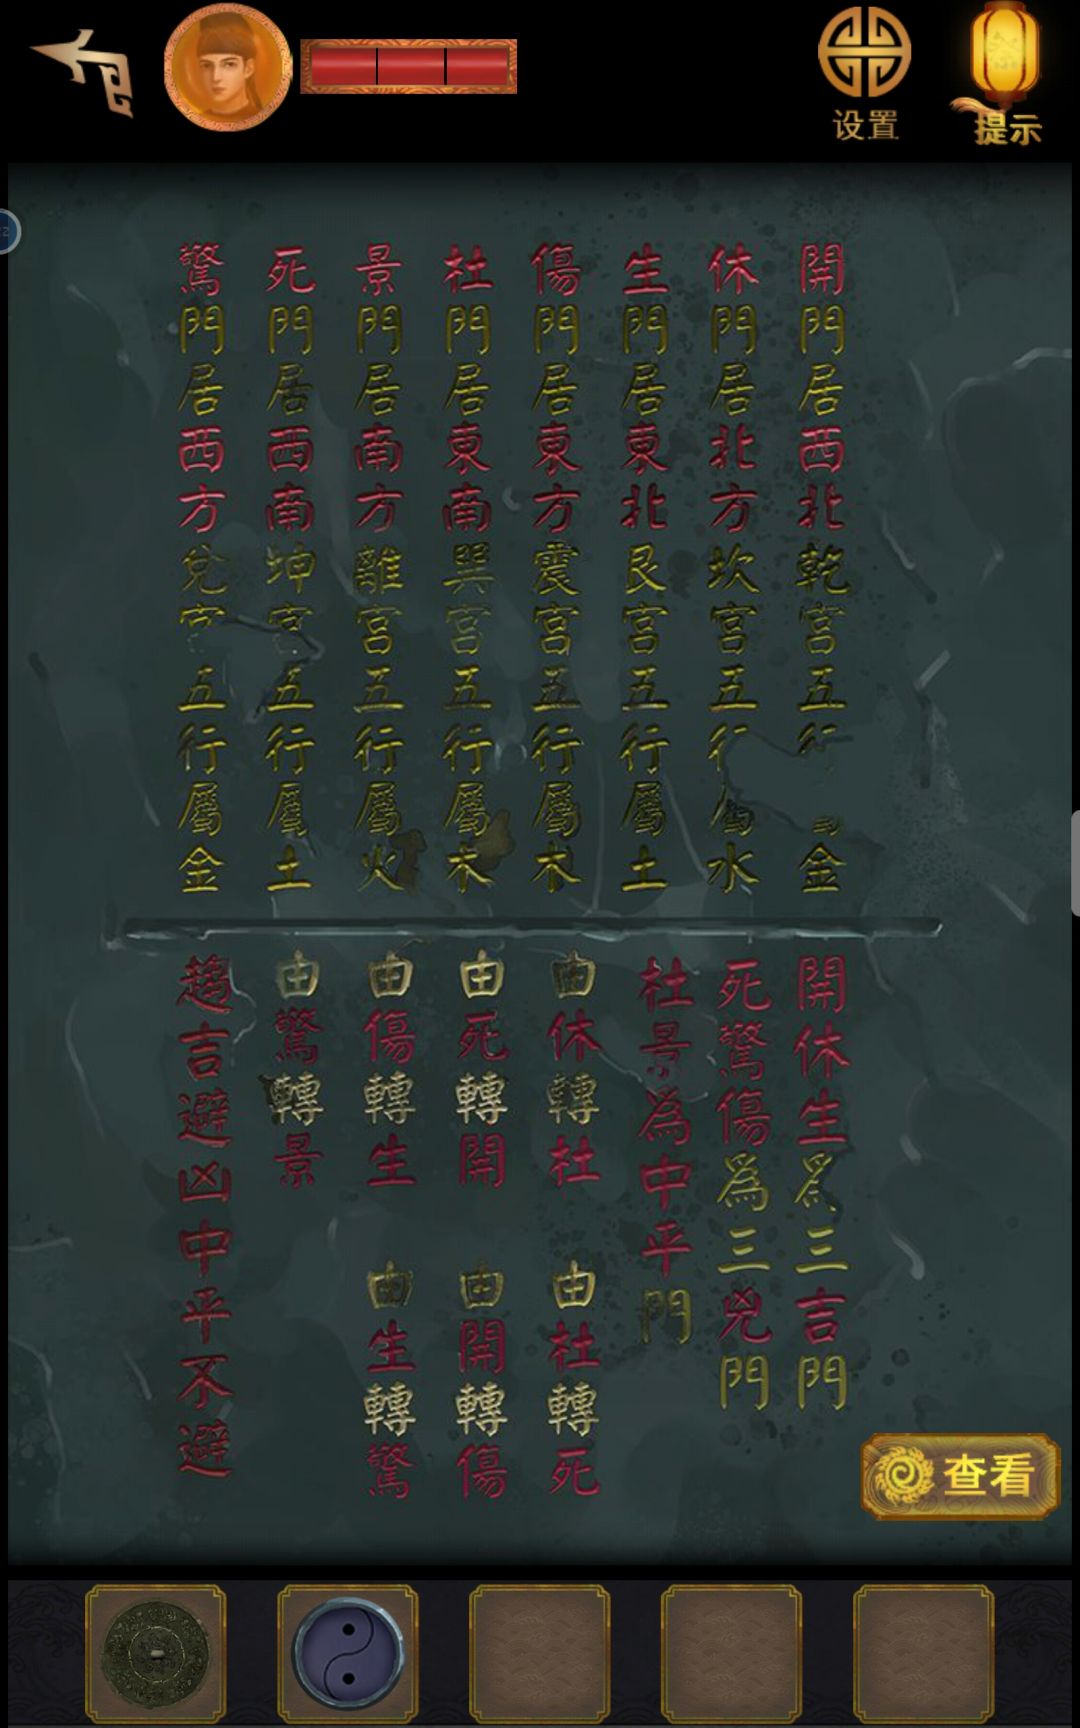 设置
提示
開門居西北乾宫五行 金
休門居北方坎宫五行屬水
生門居東北艮宫五行屬土
傷門居東方震宫五行屬木
杜門居東南巽宫五行屬木
景門居南方離宫五行屬火
死門居西南坤宫五行屬土
驚門居西方兌宫五行屬金
開休生爲三吉門
死驚傷爲三兇門
杜景爲中平門
由休轉杜 由杜轉死
由死轉開 由開轉傷
由傷轉生 由生轉驚
由驚轉景
趨吉避凶中平不避
查看